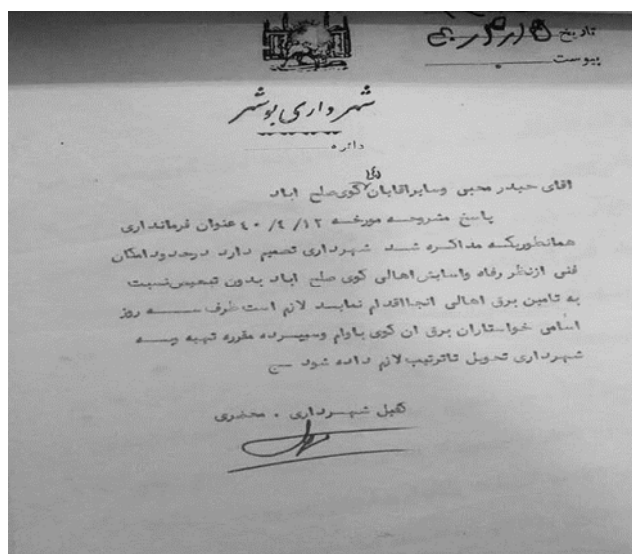 تاریخ
پیوست
شهرداری بوشهر
دائره
آقای حیدر محبی وسایر آقایان کوی صلح آباد
پاسخ مشروحه مورخه ۴۰/۴/۱۲ عنوان فرمانداری
همانطوریکه مذاکره شد شهرداری تصمیم دارد درحدود امکان
فنی ازنظر رفاه واسایش اهالی کوی صلح آباد بدون تبعیض نسبت
به تامین برق اهالی انجا اقدام نماید لازم است ظرف سه روز
اسامی خواستاران برق ان کوی باوام وسپرده مقرره تهیه وبه
شهرداری تحویل تاترتیب لازم داده شود
کفیل شهرداری . محضری